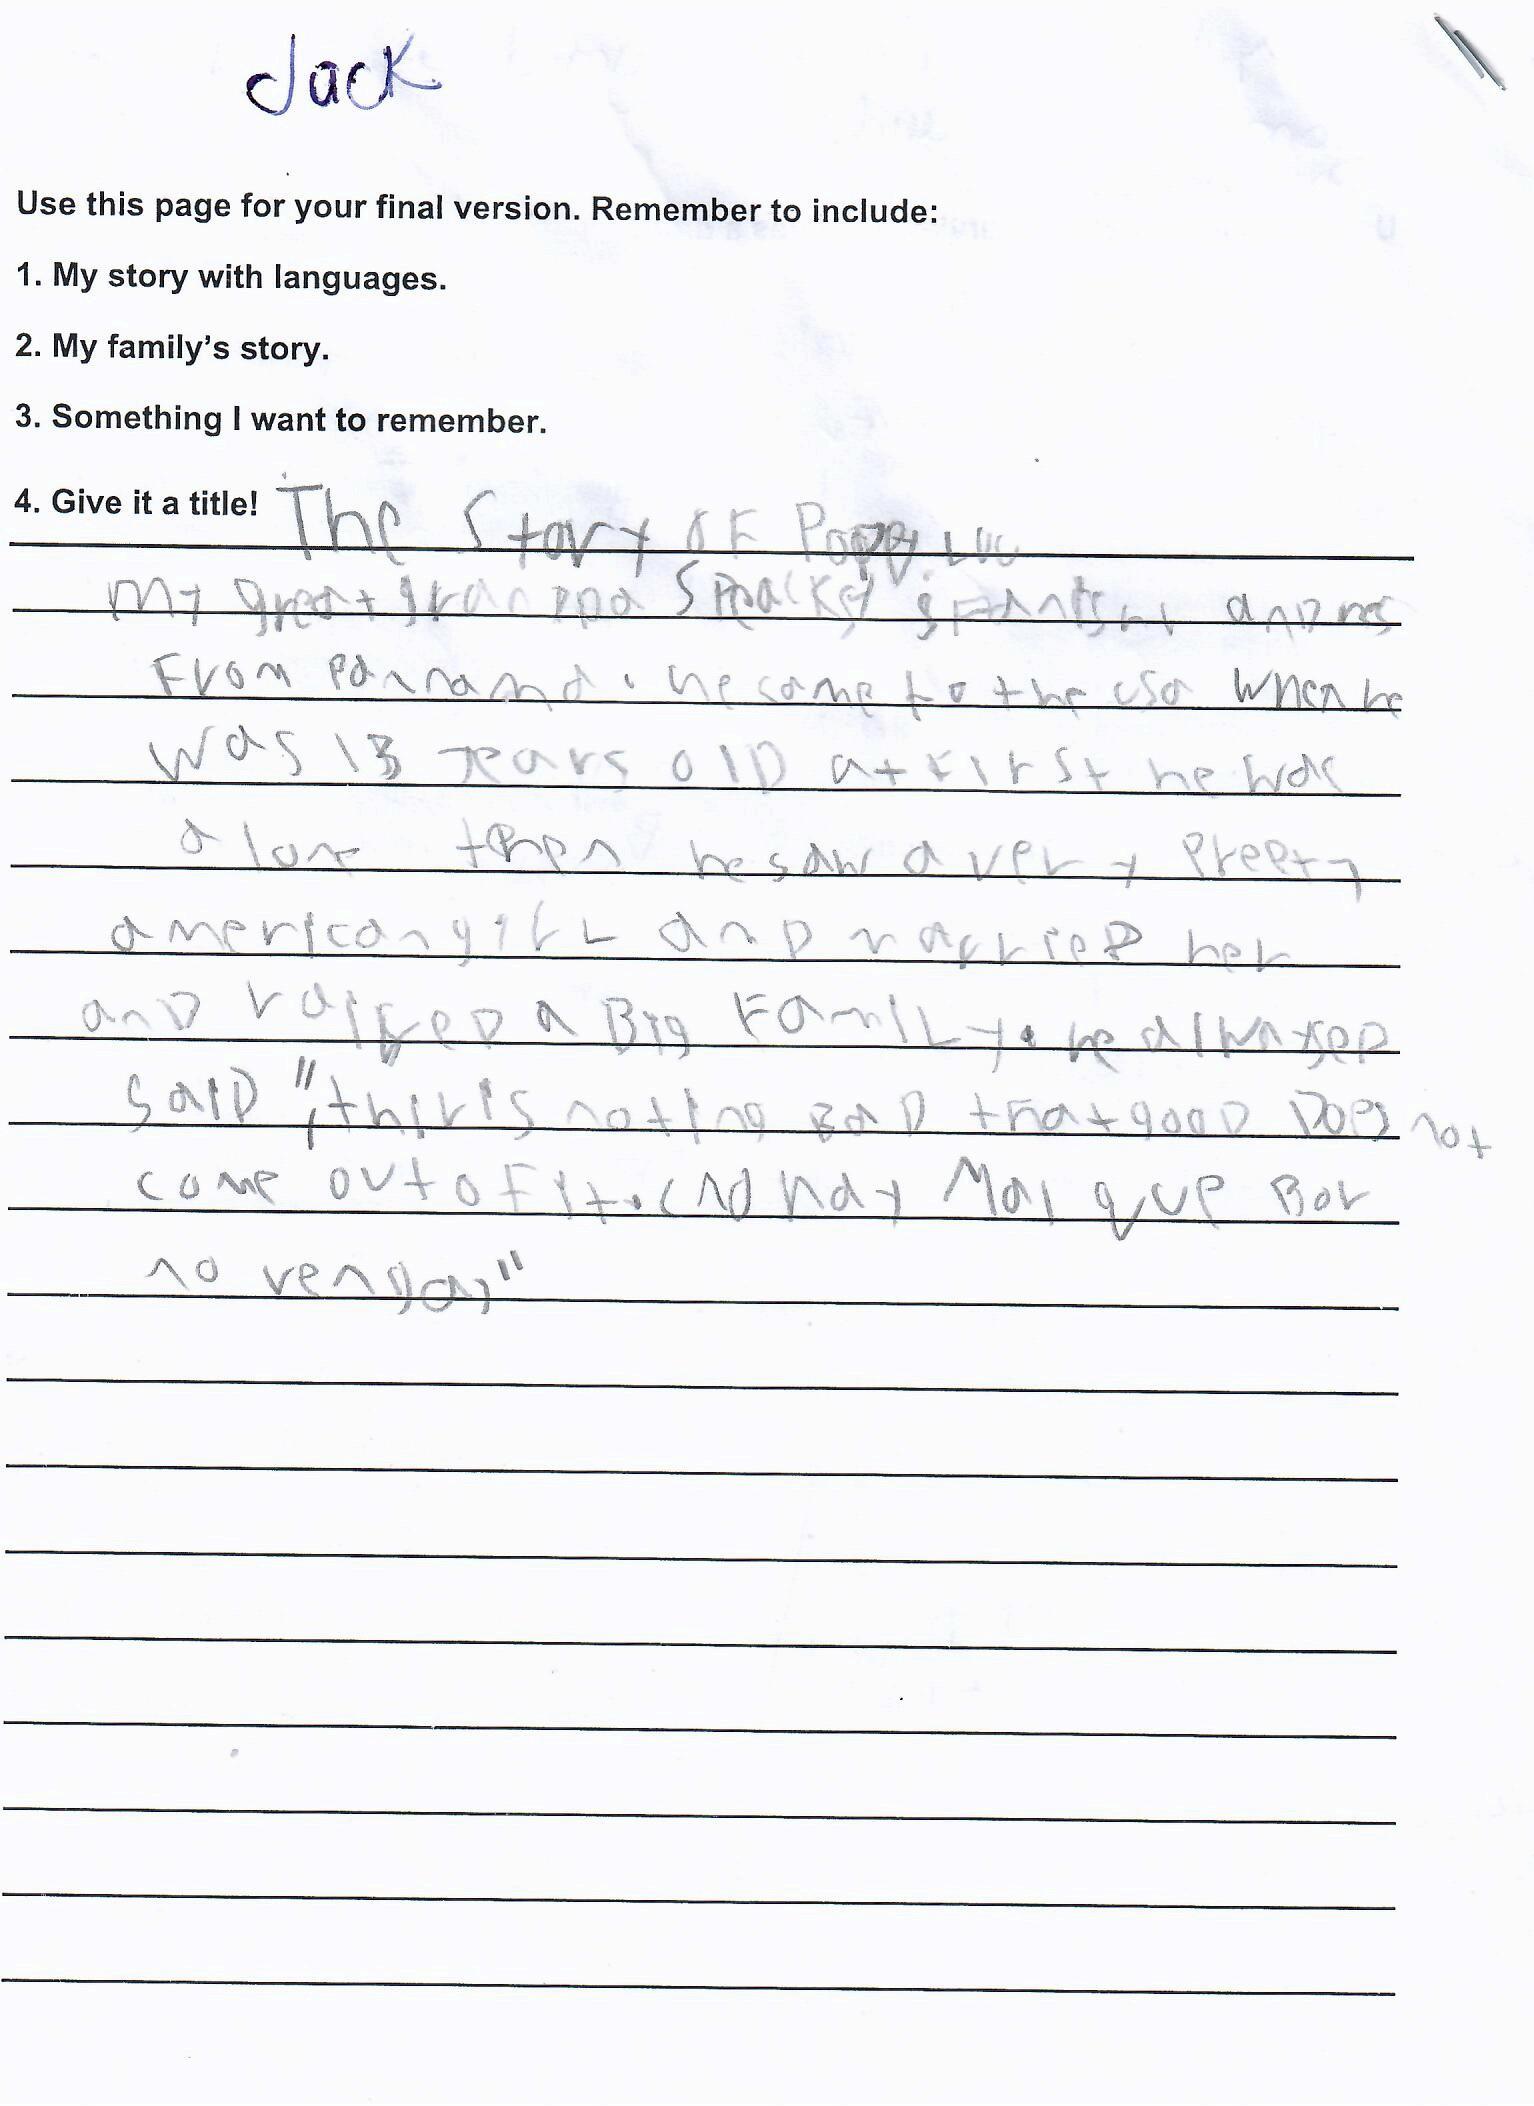 Jack
Use this page for your final version. Remember to include:
1. My story with languages.
2. My family's story.
3. Something I want to remember.
4. Give it a title! The Story OF Poppy
My great grandpa
From pannama. he came to the usa when he
was 13 years olD at First he was
alone then he saw a very preety
american girl anD marrieD her
anD raiseD a Big Family. he alwaysed
saiD "
come out oF it. no hay Mal que Bor
no venga,"